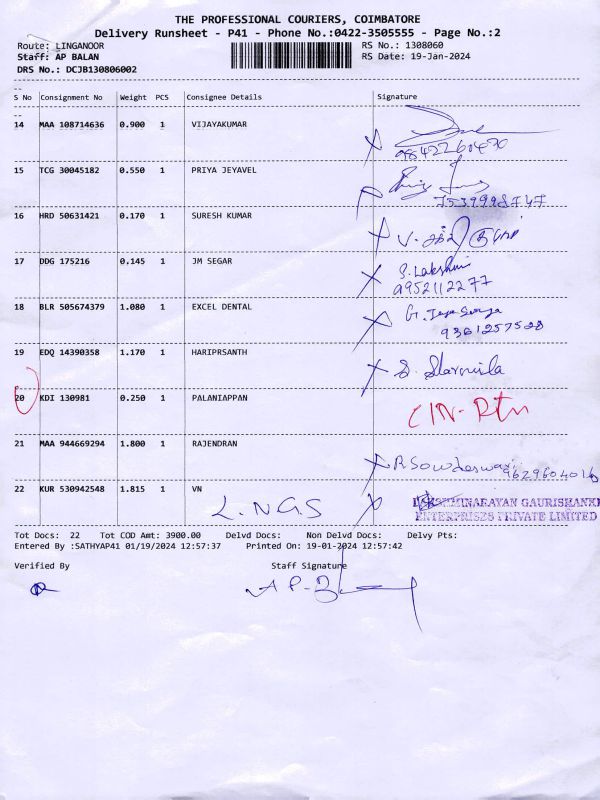 THE PROFESSIONAL COURIERS, COIMBATORE
Delivery Runsheet - P41 - Phone No.:0422-3505555 - Page No.:2
Route: LINGANOOR RS No.: 1308060
Staff: AP BALAN RS Date: 19-Jan-2024
DRS No.: DCJB130806002
S No Consignment No Weight PCS Consignee Details Signature
14 MAA 108714636 0.900 1 VIJAYAKUMAR
9842260490
15 TCG 30045182 0.550 1 PRIYA JEYAVEL
7539998747
16 HRD 50631421 0.170 1 SURESH KUMAR
17 DDG 175216 0,145 1 JM SEGAR S. Lakshmi
9952112277
18 BLR 505674379 1.080 1 EXCEL DENTAL G. Jaya Surya
9361257528
19 EDQ 14390358 1.170 1 HARIPRSANTH S. Sharmila
20 KDI 130981 0.250 1 PALANIAPPAN CIN-Rtn
21 MAA 944669294 1.800 1 RAJENDRAN R. Sowdeswari
9629604016
22 KUR 530942548 1.815 1 VN L.NGS LAKSHMINARAYAN GAURISHANKE
ENTERPRISES PRIVATE LIMITED
Tot Docs: 22 Tot COD Amt: 3900.00 Delvd Docs: Non Delvd Docs: Delvy Pts:
Entered By :SATHYAP41 01/19/2024 12:57:37 Printed On: 19-01-2024 12:57:42
Verified By Staff Signature
A P. B